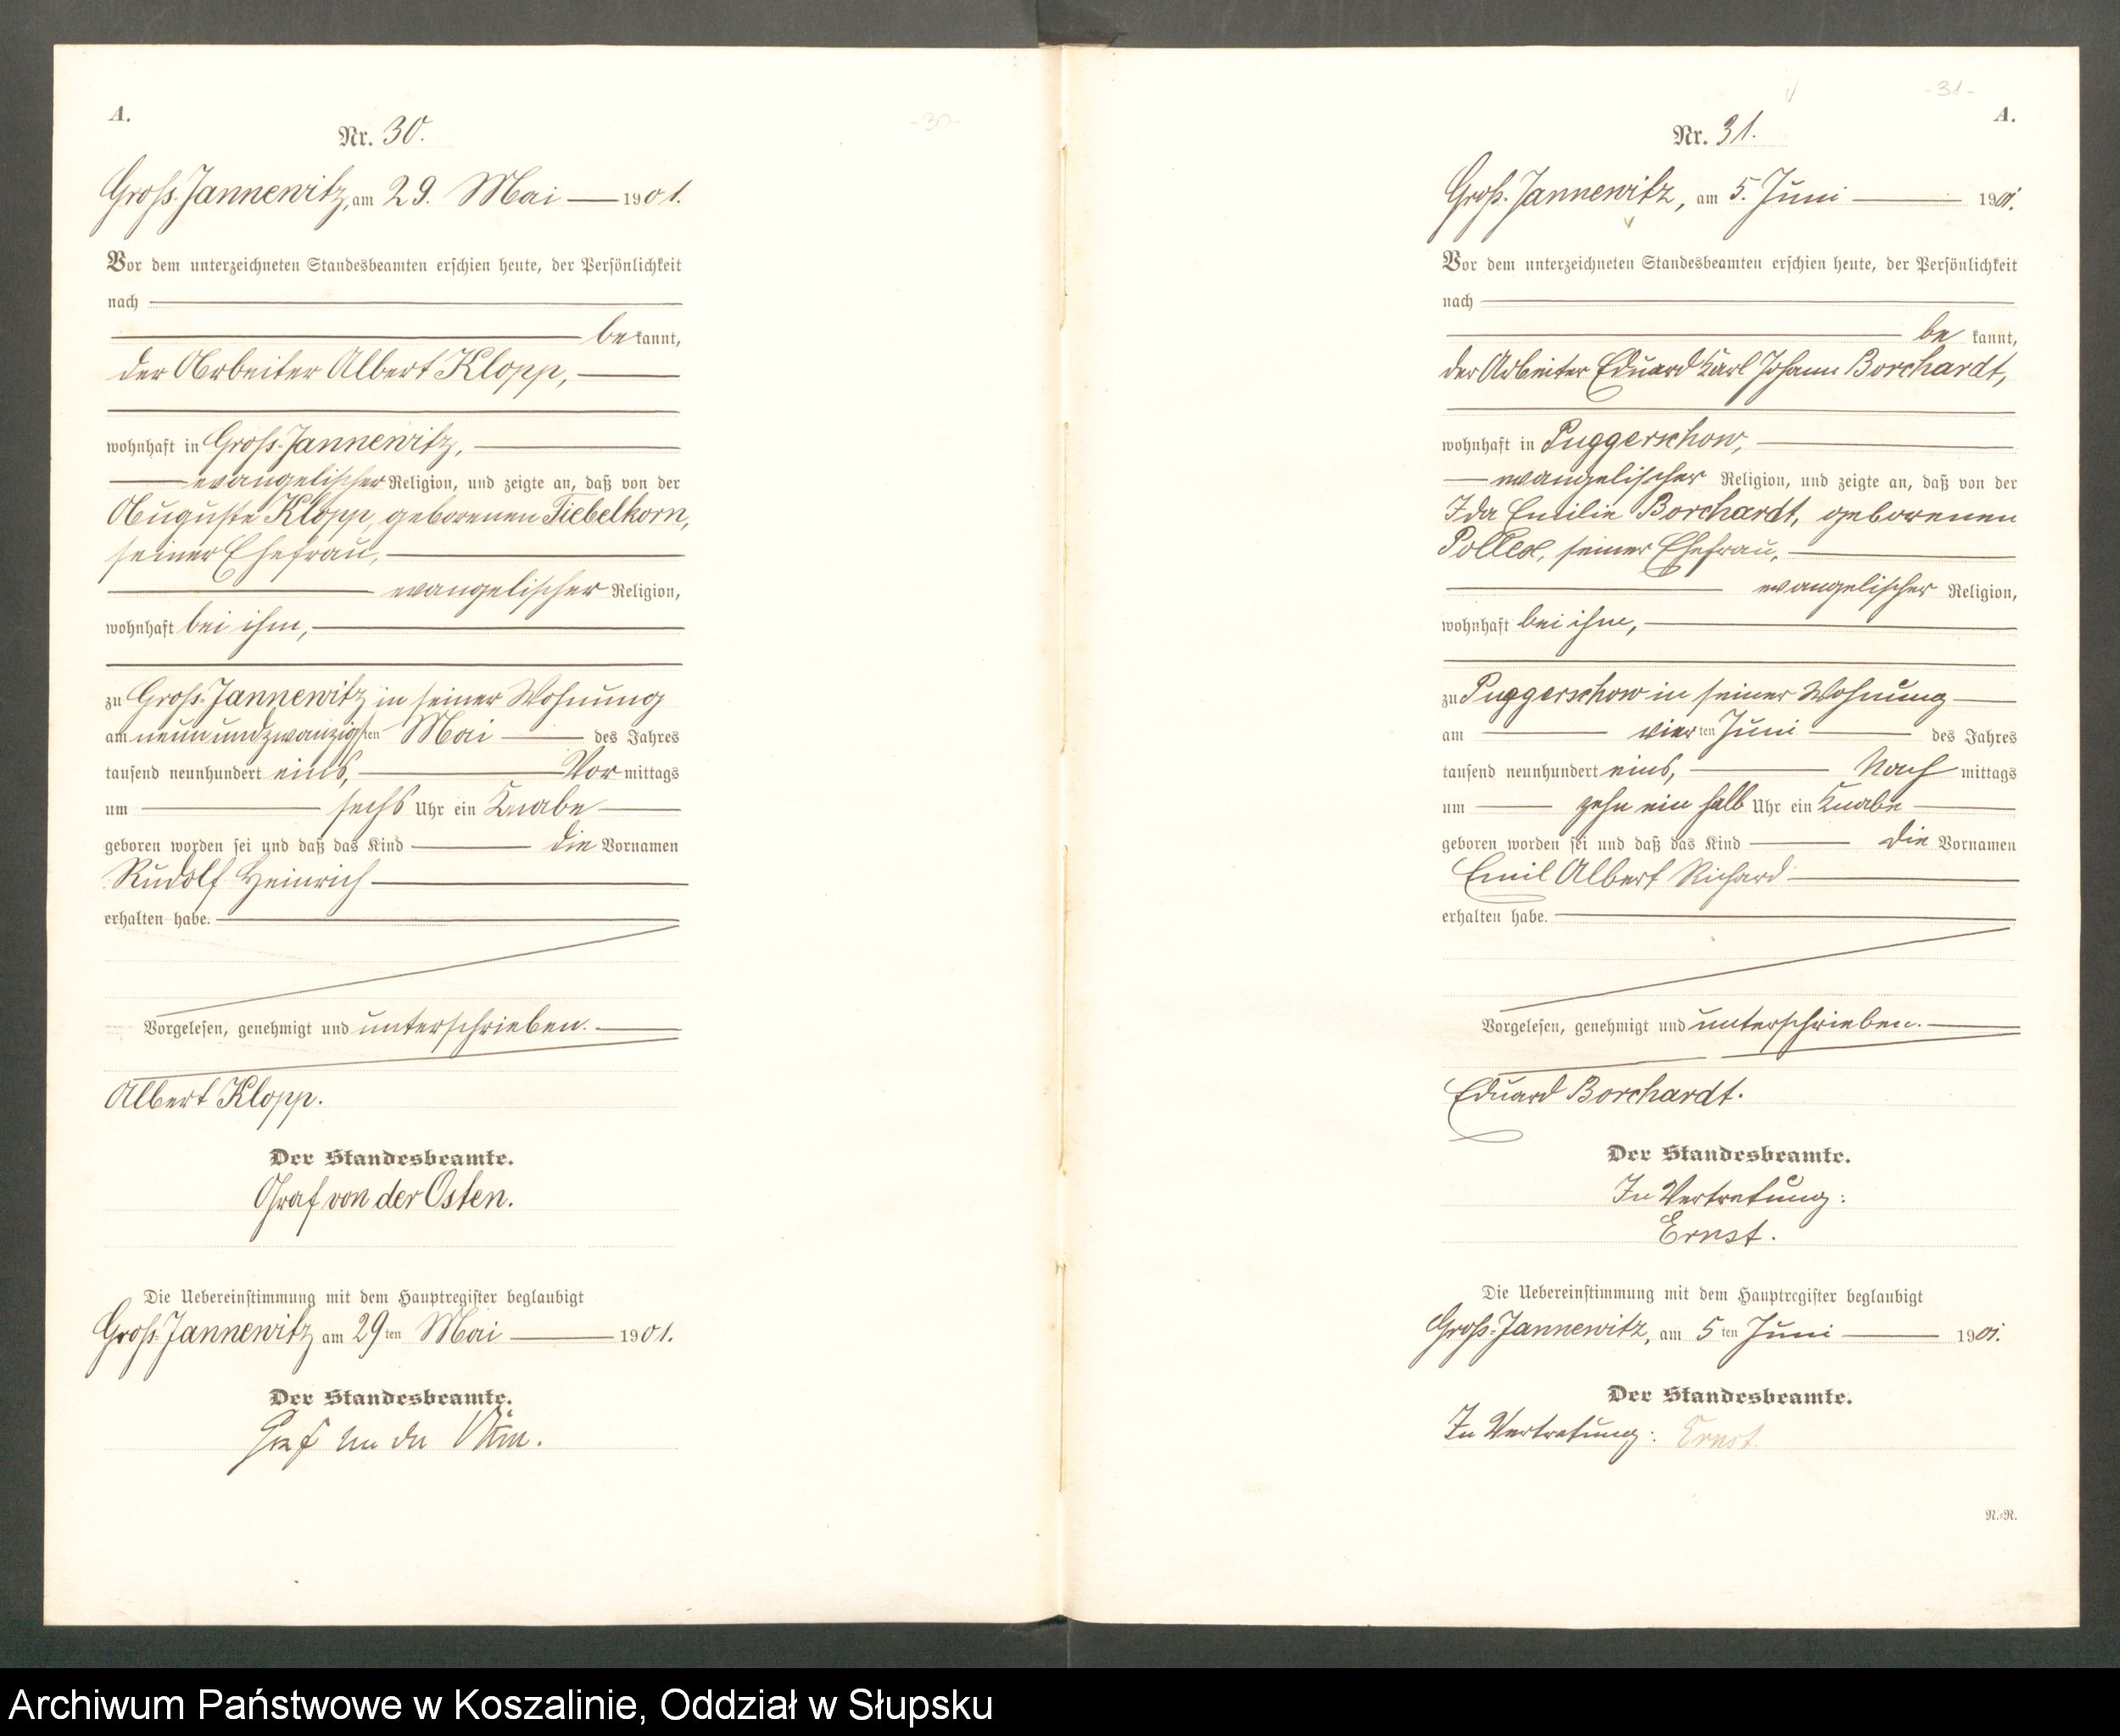 A.
Nr. 30.
-30-
Groß-Jannewitz, am 29. Mai 1901.
Vor dem unterzeichneten Standesbeamten erschien heute, der Persönlichkeit
nach
bekannt,
der Arbeiter Albert Klopp,
wohnhaft in Groß-Jannewitz,
evangelischer Religion, und zeigte an, daß von der
Auguste Klopp, geborenen Tiebelkorn,
seiner Ehefrau,
evangelischer Religion,
wohnhaft bei ihm,
zu Groß-Jannewitz in seiner Wohnung
am neunundzwanzigsten Mai des Jahres
tausend neunhundert eins, Vormittags
um sechs Uhr ein Knabe
geboren worden sei und daß das Kind die Vornamen
Rudolf Heinrich
erhalten habe.
Vorgelesen, genehmigt und unterschrieben.
Albert Klopp.
Der Standesbeamte.
Graf von der Osten.
Die Uebereinstimmung mit dem Hauptregister beglaubigt
Groß-Jannewitz am 29ten Mai 1901.
Der Standesbeamte.
Graf von der Osten.
-31-
A.
Nr. 31.
Groß-Jannewitz, am 5. Juni 1901.
Vor dem unterzeichneten Standesbeamten erschien heute, der Persönlichkeit
nach
bekannt,
der Arbeiter Eduard Karl Johann Borchardt,
wohnhaft in Puggerschow,
evangelischer Religion, und zeigte an, daß von der
Ida Emilie Borchardt, geborenen
Pollex, seiner Ehefrau,
evangelischer Religion,
wohnhaft bei ihm,
zu Puggerschow in seiner Wohnung
am vierten Juni des Jahres
tausend neunhundert eins, Nachmittags
um zehn ein halb Uhr ein Knabe
geboren worden sei und daß das Kind die Vornamen
Emil Albert Richard
erhalten habe.
Vorgelesen, genehmigt und unterschrieben.
Eduard Borchardt.
Der Standesbeamte.
In Vertretung:
Ernst.
Die Uebereinstimmung mit dem Hauptregister beglaubigt
Groß-Jannewitz, am 5ten Juni 1901.
Der Standesbeamte.
In Vertretung: Ernst.
R.-R.
Archiwum Państwowe w Koszalinie, Oddział w Słupsku